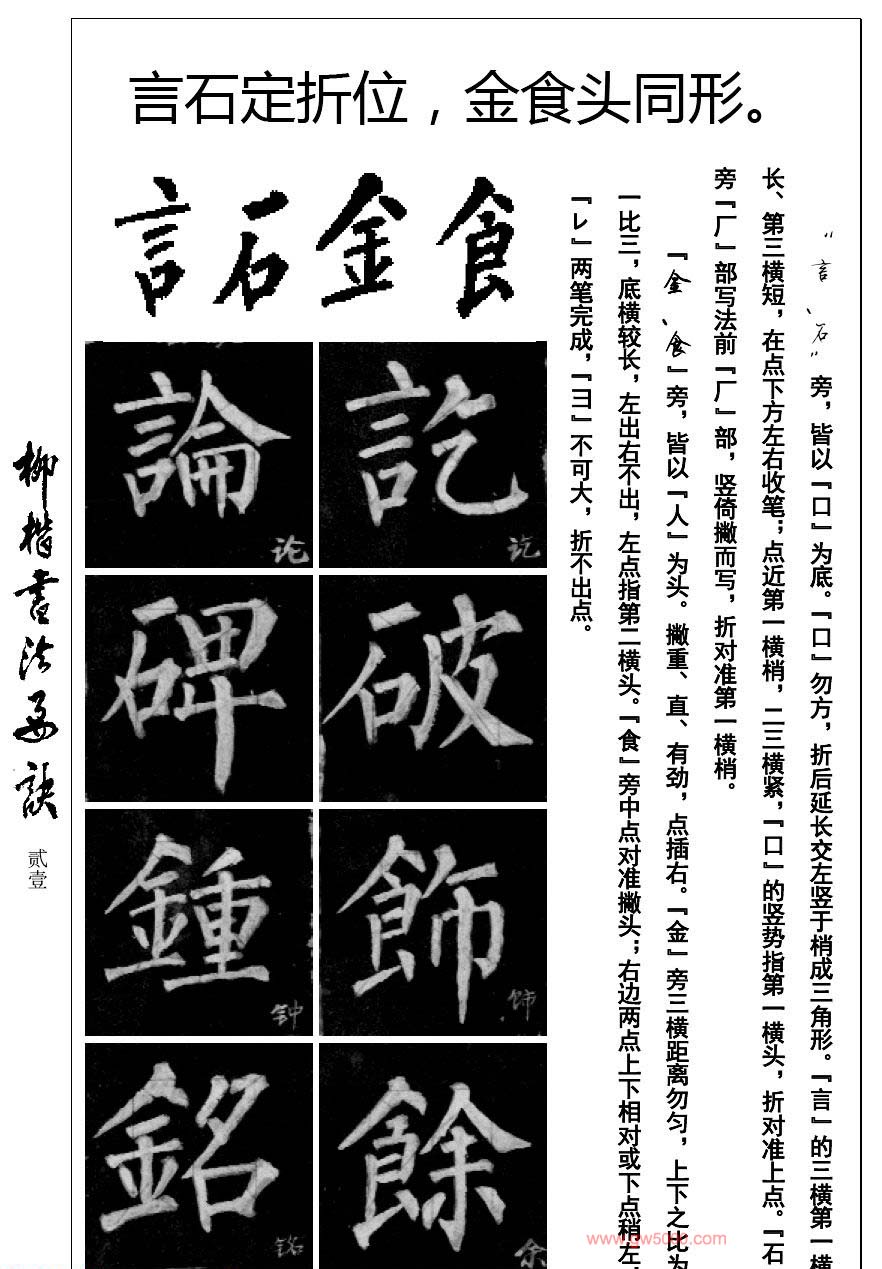 言石定折位，金食头同形。
言石金食
論 訖
论 讫
碑 破
鍾 飾
钟 饰
銘 餘
铭 余
“言、石”旁，皆以『口』为底。『口』勿方，折后延长交左竖于梢成三角形。『言』的三横第一横
长、第三横短，在点下方左右收笔；点近第一横梢，二三横紧，『口』的竖势指第一横头，折对准上点。『石
旁『厂』部写法前『厂』部，竖倚撇而写，折对准第一横梢。
『金、食』旁，皆以『人』为头。撇重、直、有劲，点插右。『金』旁三横距离勿匀，上下之比为
一比三，底横较长，左出右不出，左点指第二横头。『食』旁中点对准撇头；右边两点上下相对或下点稍左，
『レ』两笔完成，『彐』不可大，折不出点。
柳楷书法要诀
贰壹